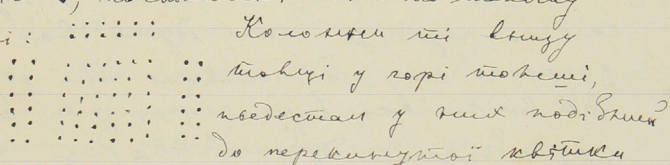 і:
Колонни ті внизу
товщі у горі тонші,
пьедестал у них подібний
до перекинутої квітки